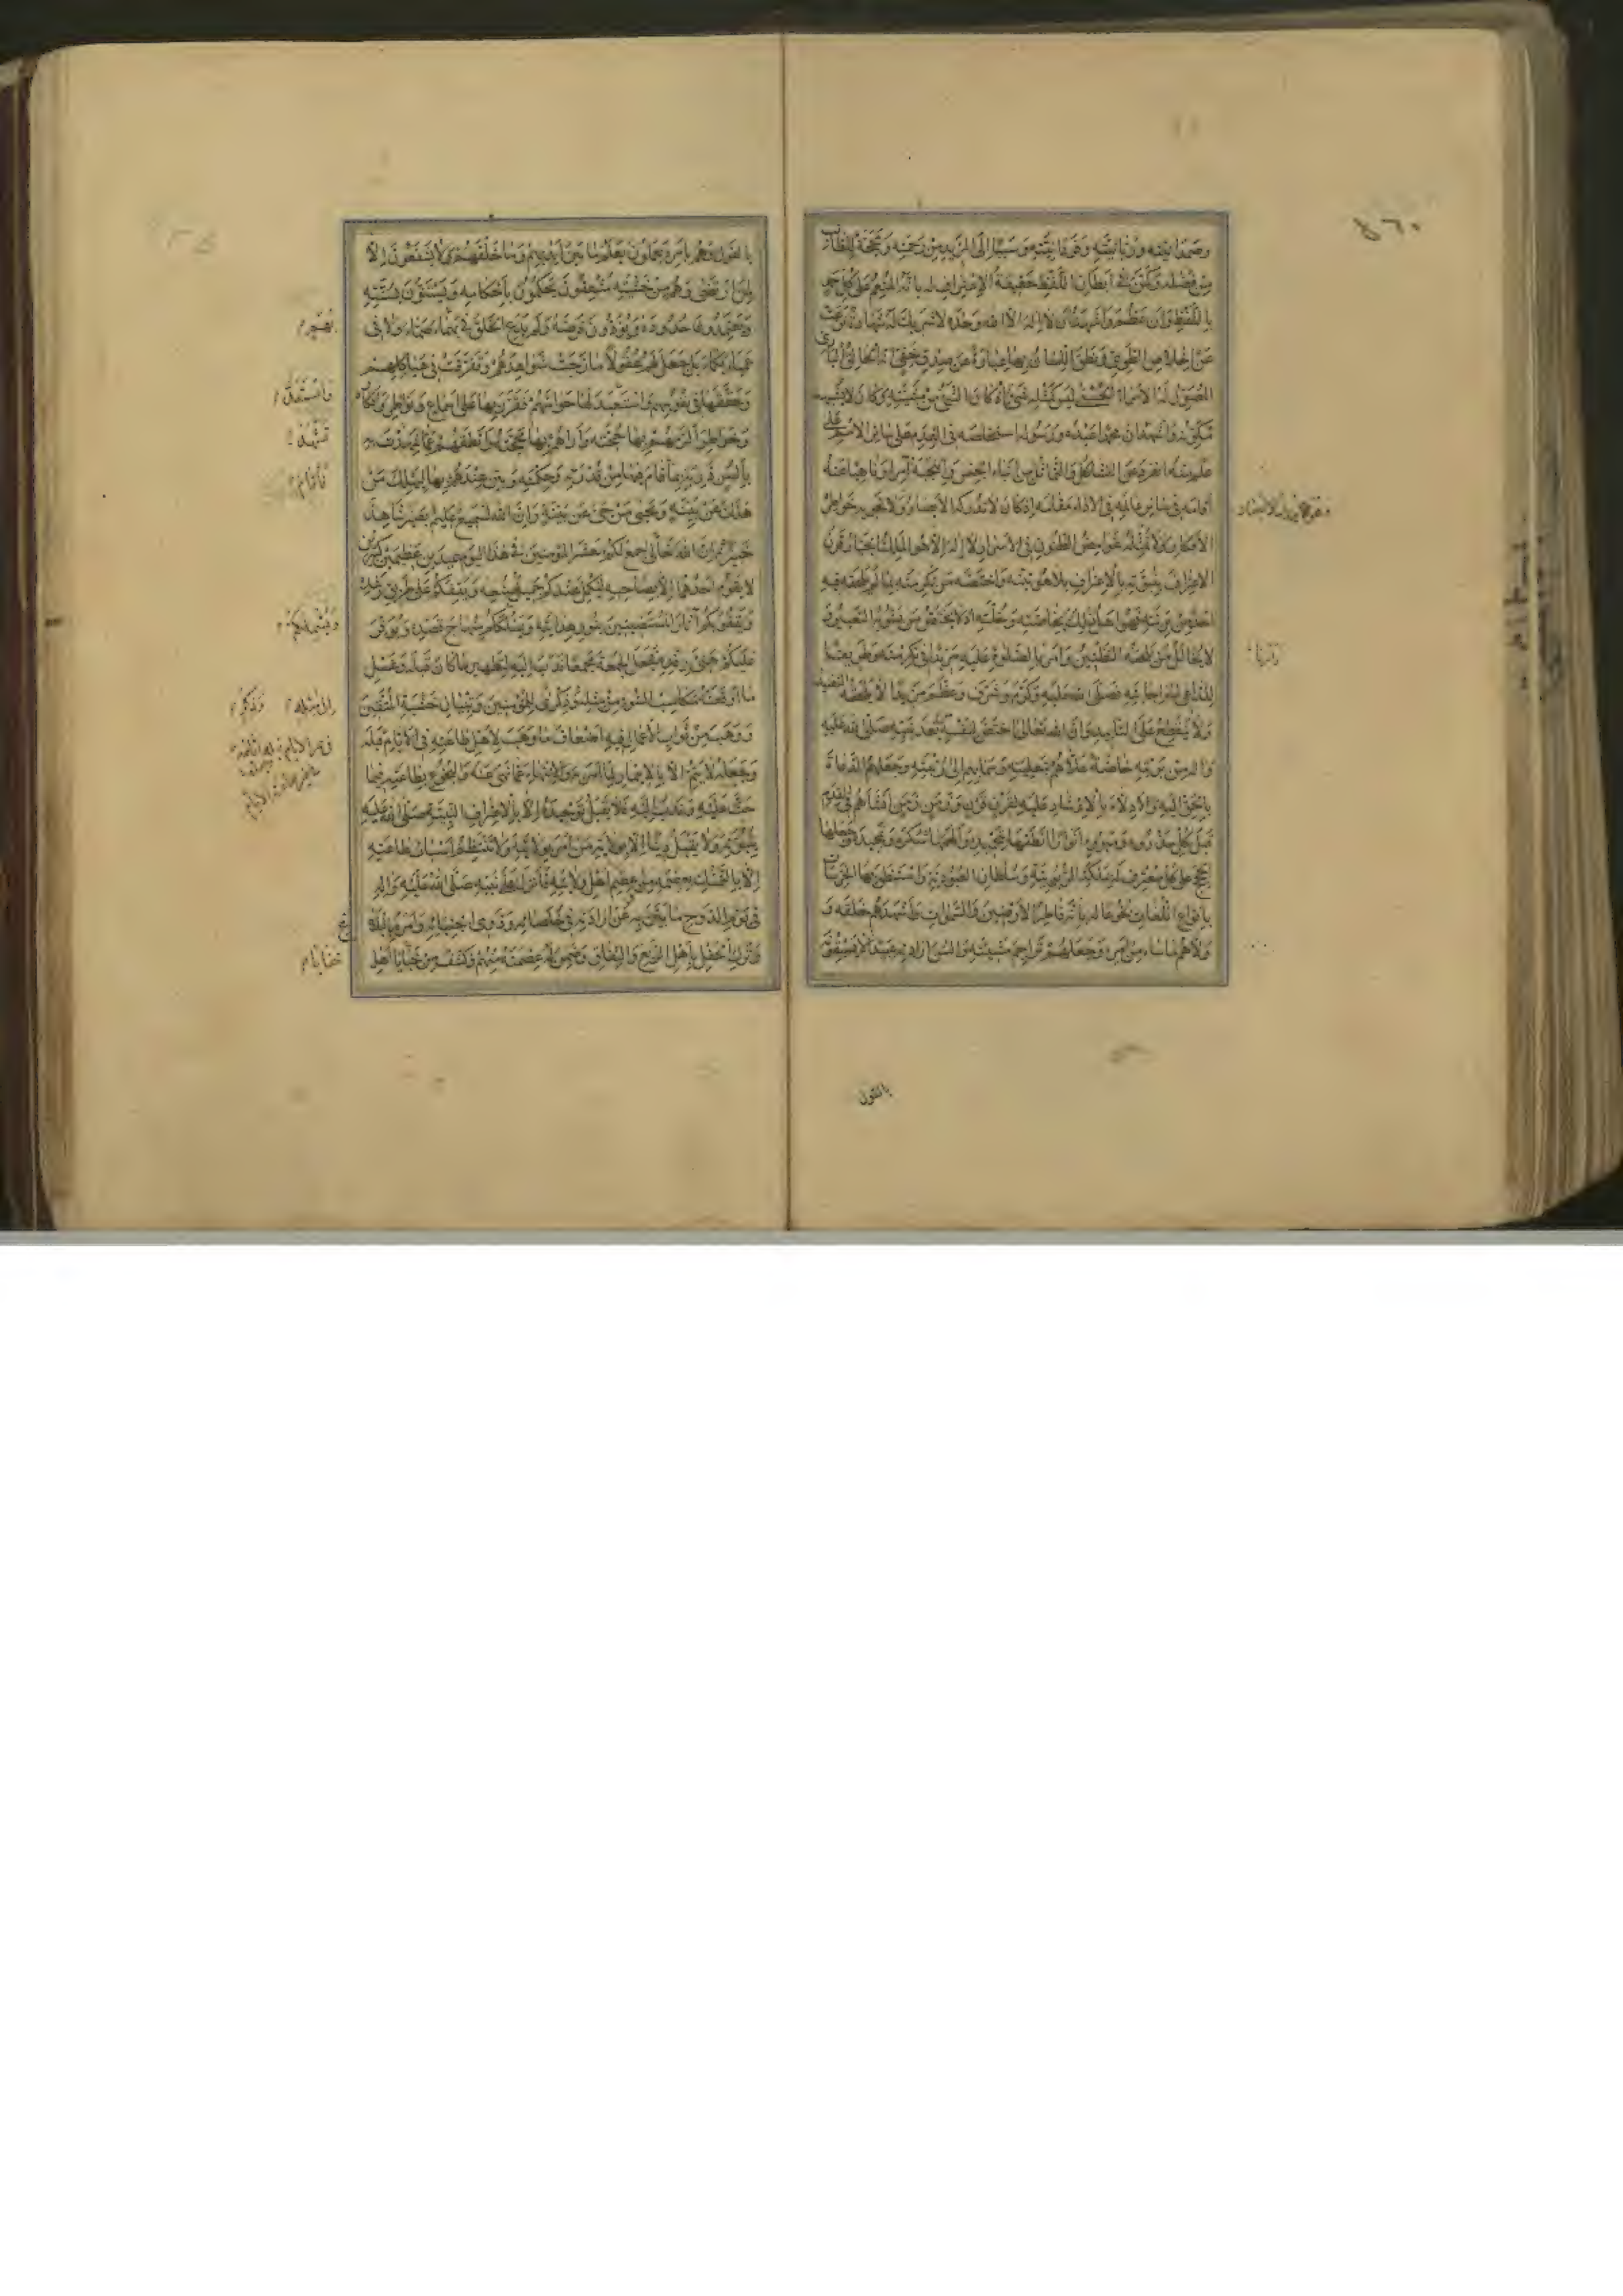 وصمدانيته وربانيته وفردانيته وسببا إلى المزيد من رحمته ومحجة للطالب
من فضله وكمن في إبطان اللفظ حقيقة الاعتراف له بأنه المنعم على كل حمد
باللفظ وإن عظم وأشهد أن لا إله إلا الله وحده لا شريك له شهادة نزعت
عن إخلاص الطوي ونطق اللسان بها عبارة عن صدق خفي أنه الخالق الباري
المصور له الأسماء الحسنى ليس كمثله شيء إذ كان الشيء من مشيته وكان لا يشبهه
مكونه وأشهد أن محمدا عبده ورسوله استخلصه في القدم على سائر الأمم على
علم منه انفرد عن التشاكل والتماثل من أبناء الجنس وانتجبه آمرا وناهيا عنه
أقامه في سائر عالمه في الأداء مقامه إذ كان لا تدركه الأبصار ولا تحويه خواطر
الأفكار ولا تمثله غوامض الظنون في الأسرار لا إله إلا هو الملك الجبار قرن
الاعتراف بنبوته بالاعتراف بلاهوتيته واختصه من تكرمته بما لم يلحقه فيه
أحد من بريته فهو أهل ذلك بخاصته وخلته إذ لا يختص من يشوبه التغيير و
لا يخالل من يلحقه التظنين وأمر بالصلوة عليه مزيدا في تكرمته وطريقا
للداعي إلى إجابته فصلى الله عليه وكرم وشرف وعظم مزيدا لا يلحقه التنفيد
ولا ينقطع على التأبيد وأن الله تعالى اختص لنفسه بعد نبيه صلى الله عليه
وآله من بريته خاصة علاهم بتعليته وسما بهم إلى رتبته وجعلهم الدعاة
بالحق إليه والأدلاء بالإرشاد عليه لقرن قرن وزمن زمن أنشأهم في القدم
قبل كل مذروء ومبروء أنوارا أنطقها بتحميده وألهمها شكره وتمجيده وجعلها
الحجج على كل معترف له بملكة الربوبية وسلطان العبودية واستنطق بها الخرسات
بأنواع اللغات بخوعا له بأنه فاطر الأرضين والسموات وأشهدهم خلقه و
ولاهم ما شاء من أمره وجعلهم تراجم مشيته وألسن إرادته عبيدا لا يسبقونه
بالقول
بالقول وهم بأمره يعملون يعلم ما بين أيديهم وما خلفهم ولا يشفعون إلا
لمن ارتضى وهم من خشيته مشفقون يحكمون بأحكامه ويستنون بسنته
ويعتمدون حدوده ويؤدون فرضه ولم يدع الخلق في بهماء صماء ولا في
عمياء بكماء بل جعل لهم عقولا مازجت شواهدهم وتفرقت في هياكلهم
وحققها في نفوسهم واستعبد لها حواسهم فقرر بها على أسماع ونواظر وأفكار
وخواطر ألزمهم بها حجته وأراهم بها محجته وأنطقهم عما شهد به
بألسن ذربة بما قام فيها من قدرته وحكمته وبين عندهم بها ليهلك من
هلك عن بينة ويحيى من حي عن بينة وإن الله لسميع عليم بصير شاهد
خبير ثم إن الله تعالى جمع لكم معشر المؤمنين في هذا اليوم عيدين عظيمين كبيرين
لا يقوم أحدهما إلا بصاحبه ليكمل عندكم جميل صنيعه ويقفكم على طريق رشده
ويقفو بكم آثار المستضيئين بنور هدايته ويسلككم منهاج قصده ويوفر
عليكم هنيء رفده فجعل الجمعة مجمعا ندب إليه لتطهير ما كان قبله وغسل
ما أوقعته مكاسب السوء من مثله وذكرى للمؤمنين وتبيان خشية المتقين
ووهب من ثواب الأعمال فيه أضعاف ما وهب لأهل طاعته في الأيام قبله
وجعله لا يتم إلا بالايتمار لما أمر به والانتهاء عما نهى عنه والبخوع بطاعته فيما
حث عليه وندب إليه فلا يقبل توحيده إلا بالاعتراف لنبيه صلى الله عليه
بنبوته ولا يقبل دينا إلا بولاية من أمر بولايته ولا تنتظم أسباب طاعته
إلا بالتمسك بعصمه وعصم أهل ولايته فأنزل على نبيه صلى الله عليه وآله
في يوم الدوح ما بين به عن إرادته في خلصائه وذوي اجتبائه وأمره بالبلاغ
وترك الحفل بأهل الزيغ والنفاق وضمن له عصمته منهم وكشف من خبايا أهل